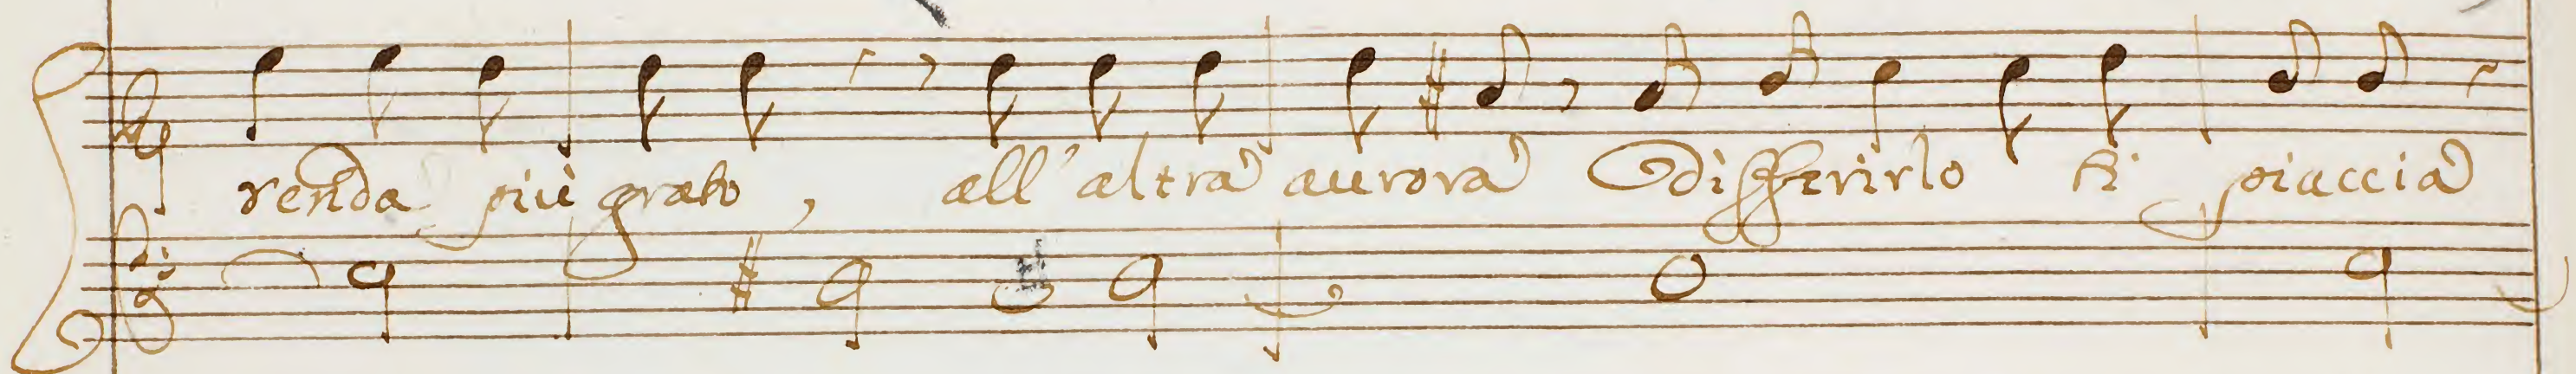 renda più grato, all'altra aurora differirlo ti piaccia